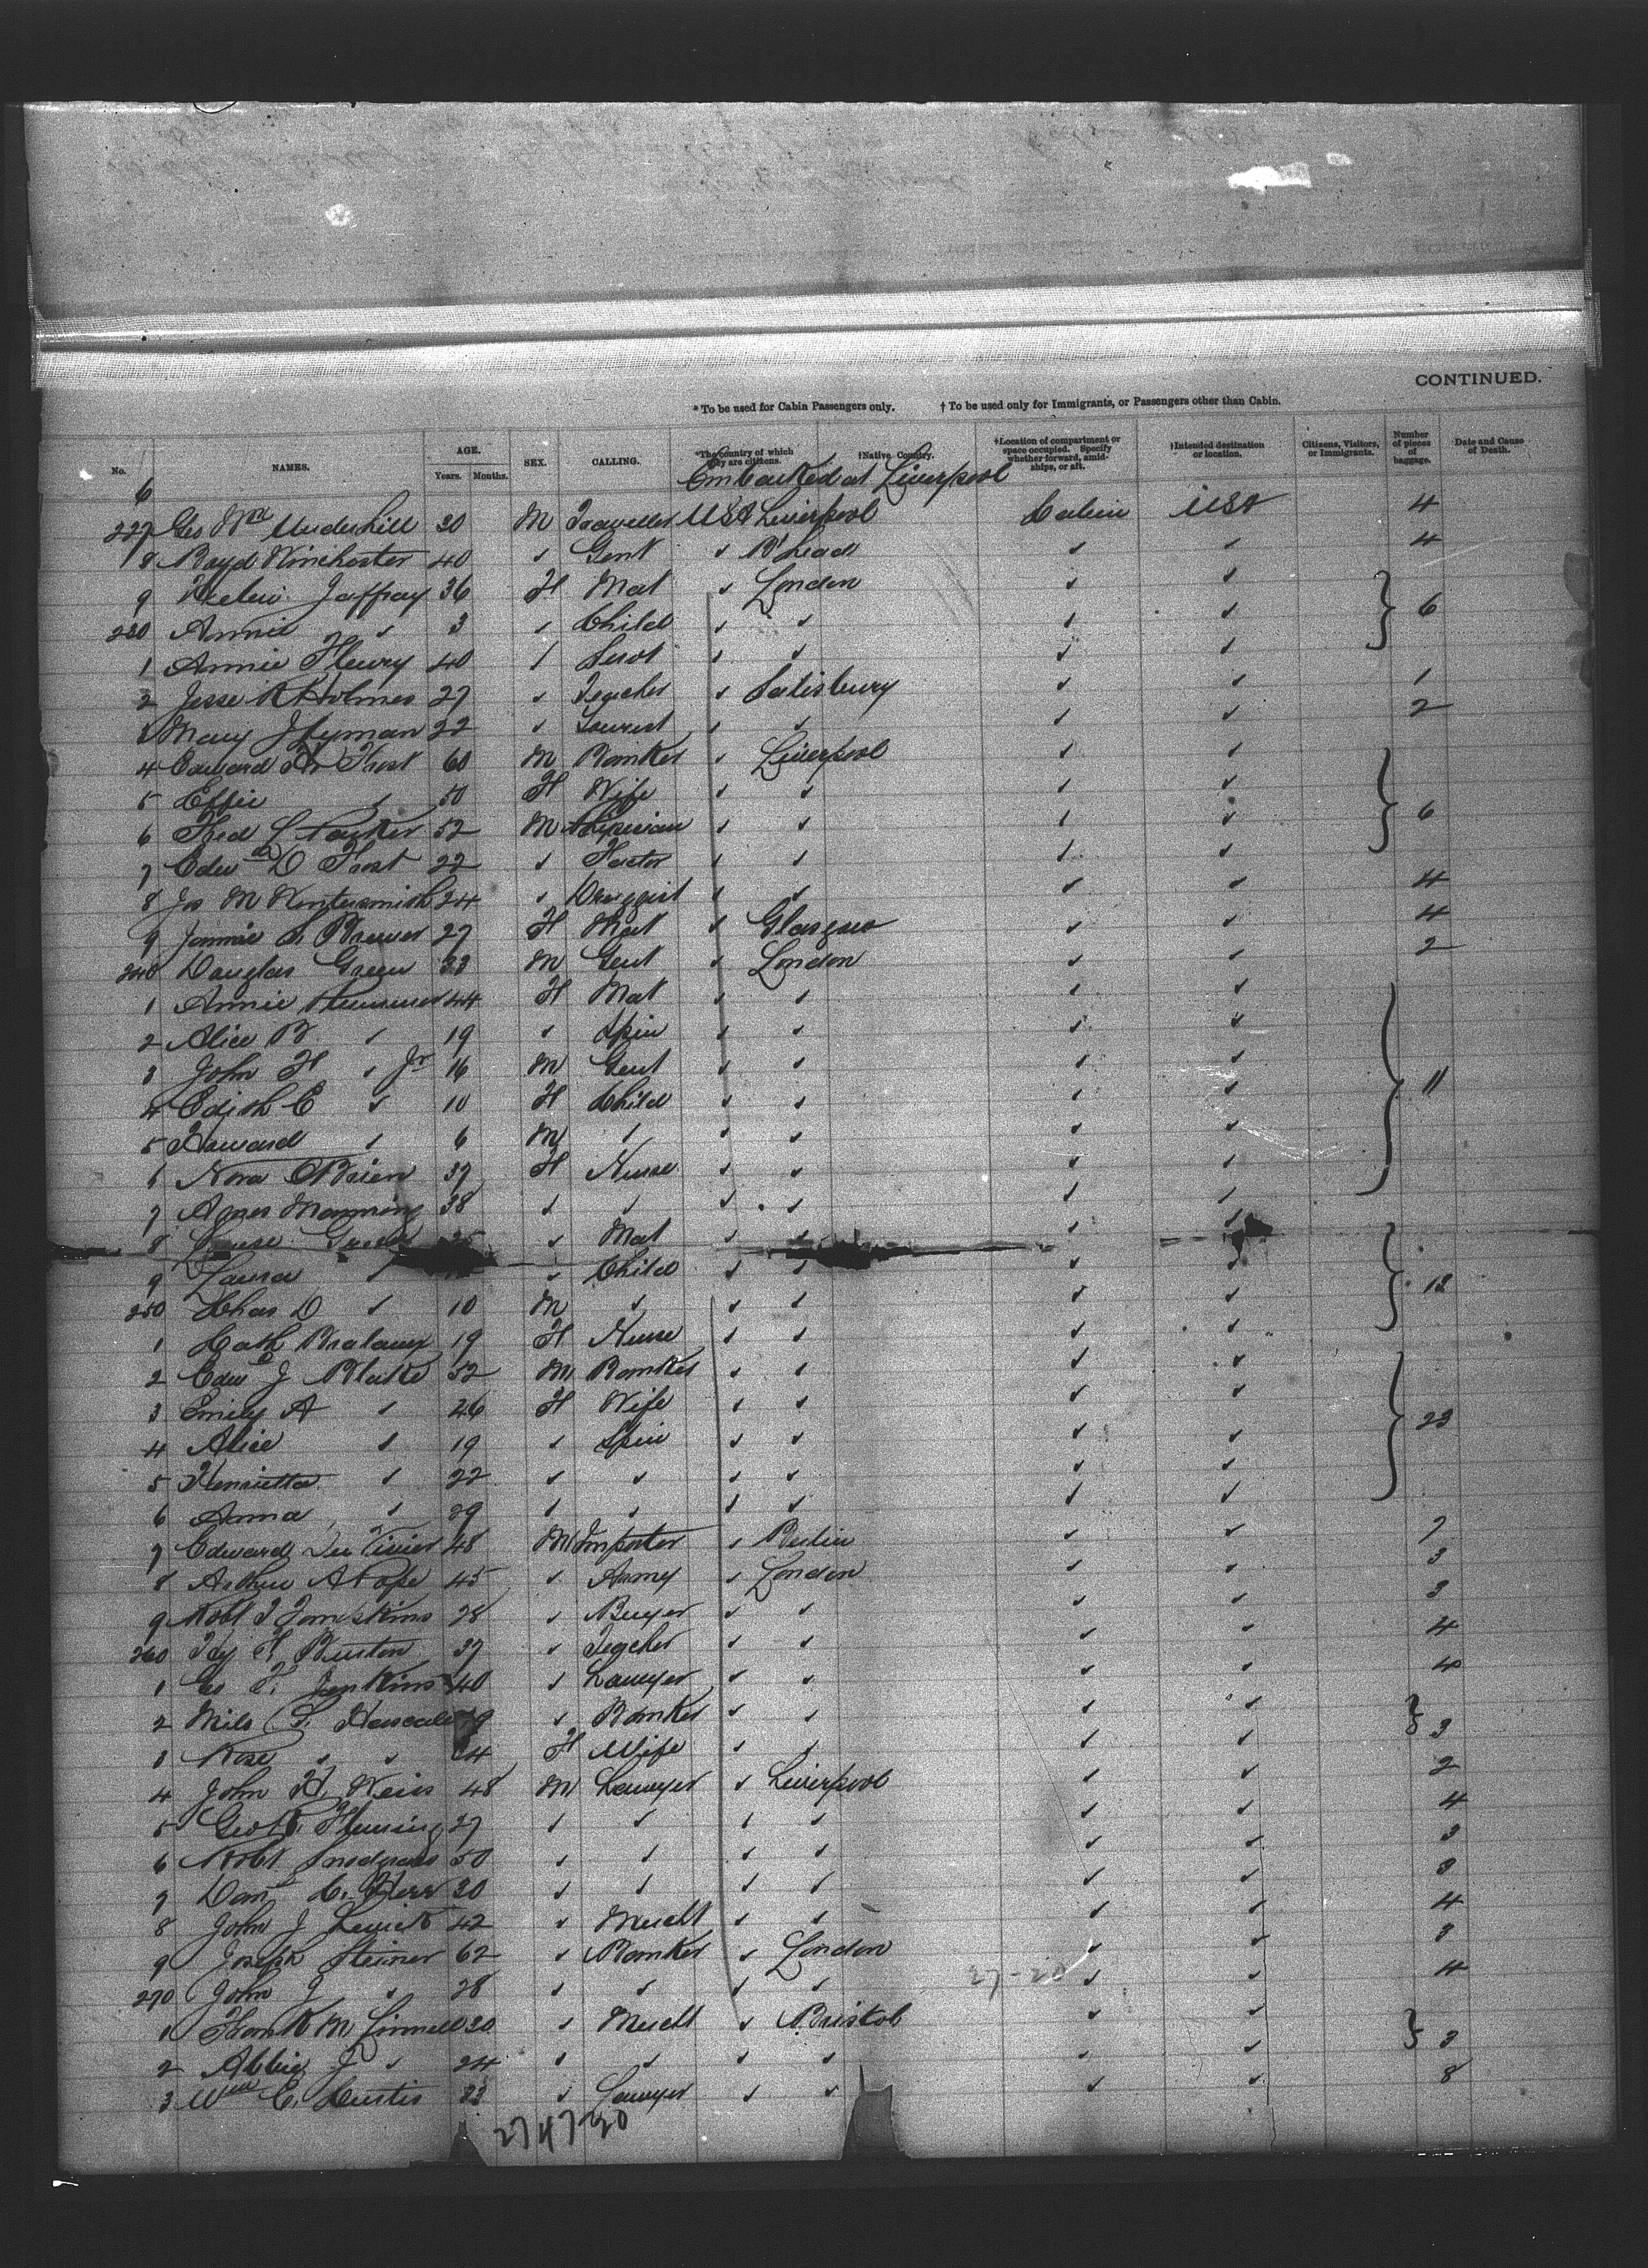 CONTINUED.
* To be used for Cabin Passengers only. † To be used only for Immigrants, or Passengers other than Cabin.
No. NAMES. AGE. Years. Months. SEX. CALLING. *The country of which they are citizens. †Native Country. †Location of compartment or space occupied. Specify whether forward, amidships, or aft. †Intended destination or location. Citizens, Visitors, or Immigrants. Number of pieces of baggage. Date and Cause of Death.
6 Embarked at Liverpool
227 Geo Wm Underhill 30 M Traveller USA Liverpool Cabin USA 4
8 Boyd Winchester 40 " Gent " B'head " " 4
9 Helen Jaffray 36 F Mat " London " "
230 Annie " 3 " Child " " " " 6
1 Annie Fleury 40 " Servt " " " "
2 Jesse K Holmes 27 " Teacher " Salisbury " " 1
3 Mary J Lyman 22 " Tourist " " " " 2
4 Edward H. Frost 60 M Banker " Liverpool " "
5 Effie " 50 F Wife " " " "
6 Fred L Parker 52 M Physician " " " " 6
7 Edwd D Frost 22 " Factor " " " "
8 Jas M Wintersmith 24 " Druggist " " " " 4
9 Jennie S. Brewer 27 F Mat " Glasgow " " 4
240 Douglas Green 33 M Gent " London " " 2
1 Annie 44 F Mat " " " "
2 Alice B " 19 " Spin " " " "
3 John H " Jr 16 M Gent " " " "
4 Edith E " 10 F Child " " " " 11
5 Howard " 6 M " " " " "
6 Nora O'Brien 37 F Nurse " " " "
7 Agnes Manning 38 " " " " " "
8 Louise Green " Mat " " " "
9 Laura " " Child " " " "
250 Chas D " 10 M " " " " " 12
1 Cath 19 F Nurse " " " "
2 Edwd J Blake 52 M Banker " " " "
3 Emily A " 46 F Wife " " " "
4 Alice " 19 " Spin " " " " 23
5 Henrietta " 22 " " " " " "
6 Anna " 29 " " " " " "
7 Edward Du Vivier 48 M Importer " Berlin " " 7
8 Arthur A Pope 45 " Army " London " " 3
9 Robt J Tompkins 28 " Buyer " " " " 3
260 H Burton 37 " Teacher " " " " 4
1 Geo F. Jenkins 40 " Lawyer " " " " 4
2 Milo S. " Banker " " " "
3 Rose " " F Wife " " " " 3
4 John H. Weiss 48 M Lawyer " Liverpool " " 2
5 Geo R. Fleming 27 " " " " " " 4
6 Robt Snodgrass 50 " " " " " " 3
7 Danl C. Herr 30 " " " " " " 3
8 John J 42 " Mercht " " " " 4
9 Joseph Steiner 62 " Banker " London " " 3
270 John J " 28 " " " " " " 4
1 Frank M Linnell 30 " Mercht " Bristol " "
2 Abbie J " 24 " " " " " " 3
3 Wm E. Curtis 33 " Lawyer " " " " 8
2747-20